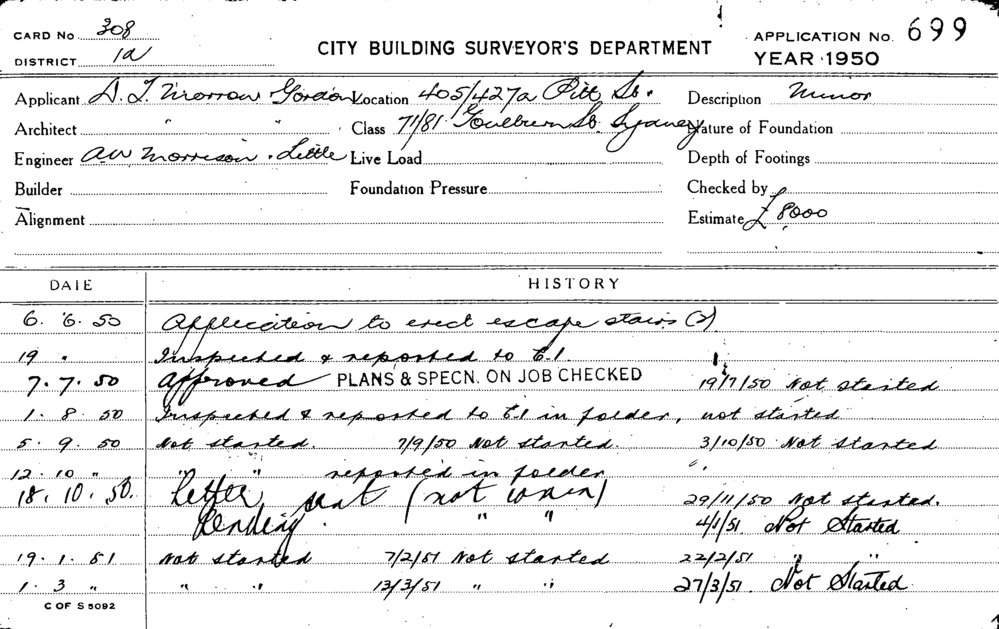 CARD No 308
DISTRICT 1a
CITY BUILDING SURVEYOR'S DEPARTMENT
APPLICATION No. 699
YEAR 1950
Applicant D. T. Morrow & Gordon Location 405/427a Pitt St. Description Minor
Architect " " Class 71/81 Goulburn St. Sydney Nature of Foundation
Engineer A W Morrison & Little Live Load Depth of Footings
Builder Foundation Pressure Checked by
Alignment Estimate £ 8000
DATE HISTORY
6. 6. 50 Application to erect escape stairs (2)
19 " Inspected & reported to C.I
7. 7. 50 Approved PLANS & SPECN. ON JOB CHECKED 19/7/50 Not started
1. 8. 50 Inspected & reported to C.I in folder, not started
5. 9. 50 Not started. 7/9/50 Not started. 3/10/50 Not started
12. 10 " " " reported in folder "
18. 10. 50. Letter sent (not) 29/11/50 Not started.
Pending " " 4/1/51 Not Started
19. 1. 51 Not started 7/2/51 Not started 22/2/51 " "
1. 3 " " " 13/3/51 " " 27/3/51. Not Started.
C OF S 5092